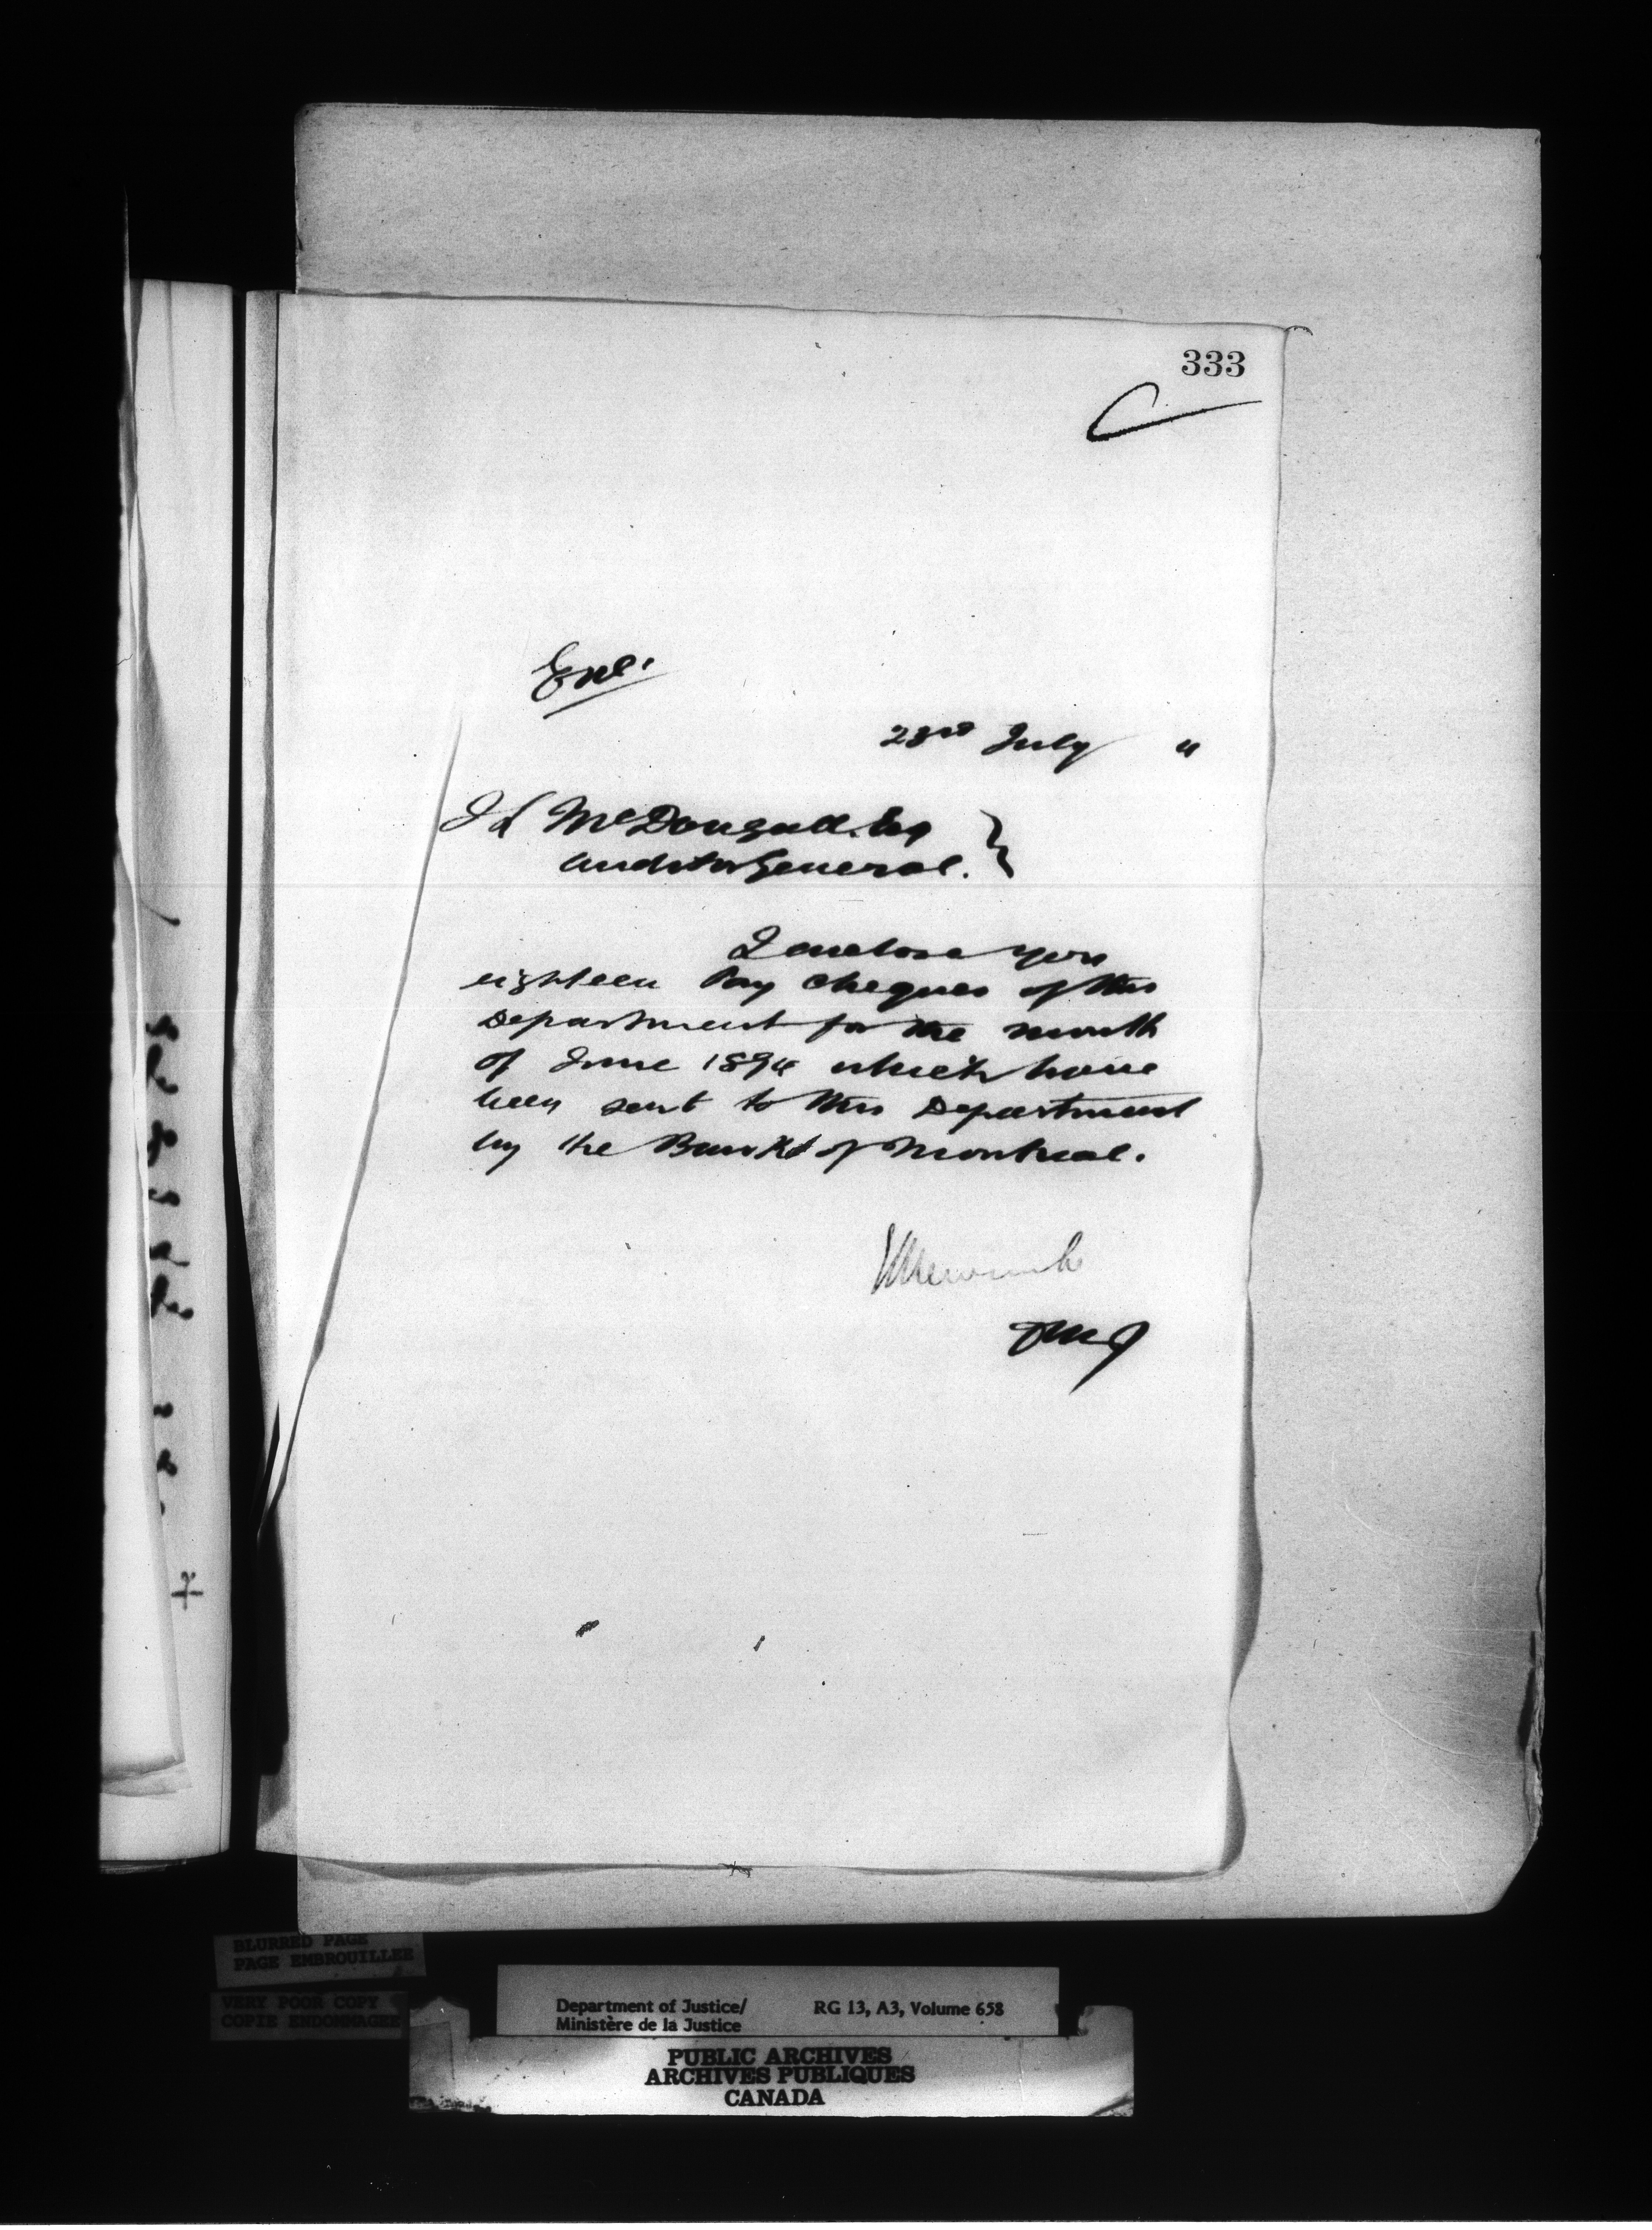 333
Encl.
23rd July "
J L McDougall. Esq
Auditor General.
I enclose you
eighteen Pay cheques of this
Department for the month
of June 1894 which have
been sent to this Department
by the Bank of Montreal.
Newcombe
DMJ
BLURRED PAGE
PAGE EMBROUILLEE
VERY POOR COPY
COPIE ENDOMMAGEE
Department of Justice/ RG 13, A3, Volume 658
Ministère de la Justice
PUBLIC ARCHIVES
ARCHIVES PUBLIQUES
CANADA